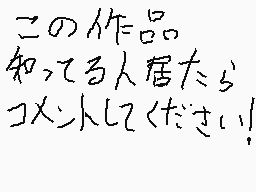 この作品
知ってる人居たら
コメントしてください!